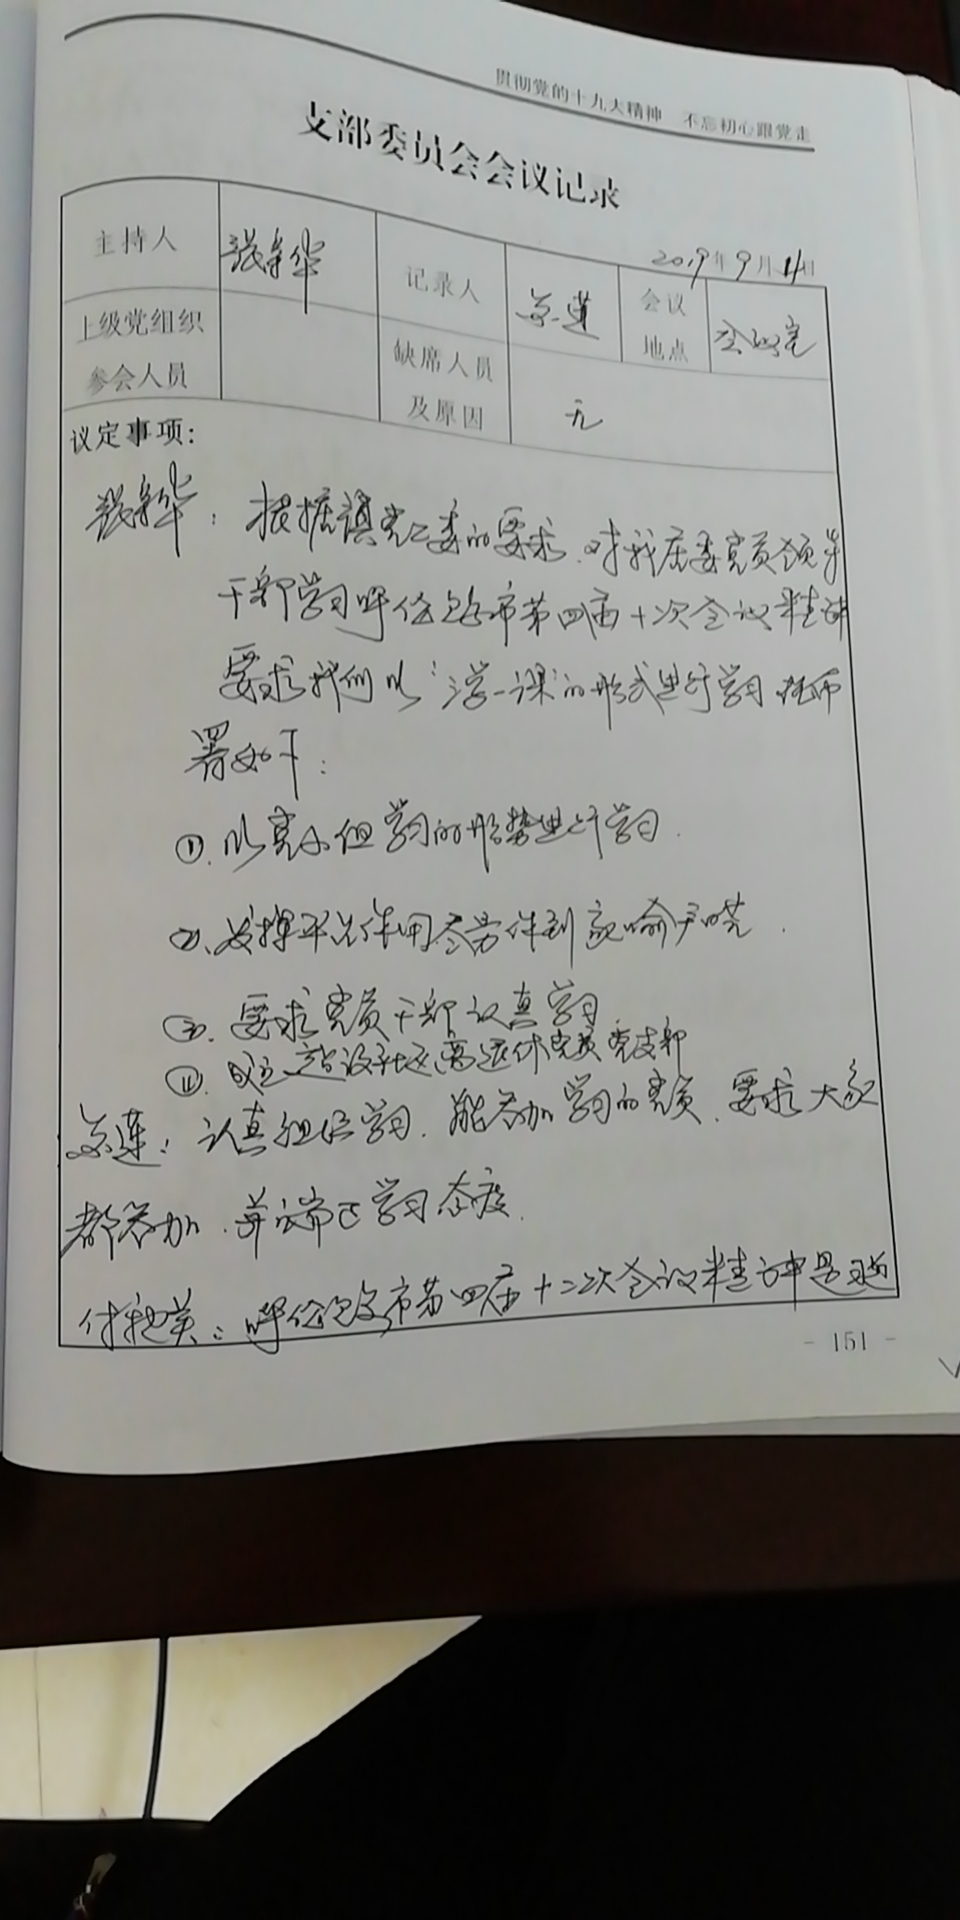 贯彻党的十九大精神 不忘初心跟党走
支部委员会会议记录
2019年9月11日
主持人 张 华 记录人 莲 会议地点 会议室
上级党组织参会人员 缺席人员及原因 无
议定事项:
华:根据镇党工委的要求,对我居委党员领导
干部学习呼伦贝尔市第四届十次会议精神
要求我们以“学一课”的形式进行学习
署如下:
①.以党小组学习的形势进行学习.
②.发挥 作用 传到家喻户晓.
③.要求党员干部认真学习
④.成立 设社区离退休党员党支部
莲:认真组织学习.能参加学习的党员.要求大家
都参加.并端正学习态度.
付 英:呼伦贝尔市第四届十二次会议精神是
- 151 -